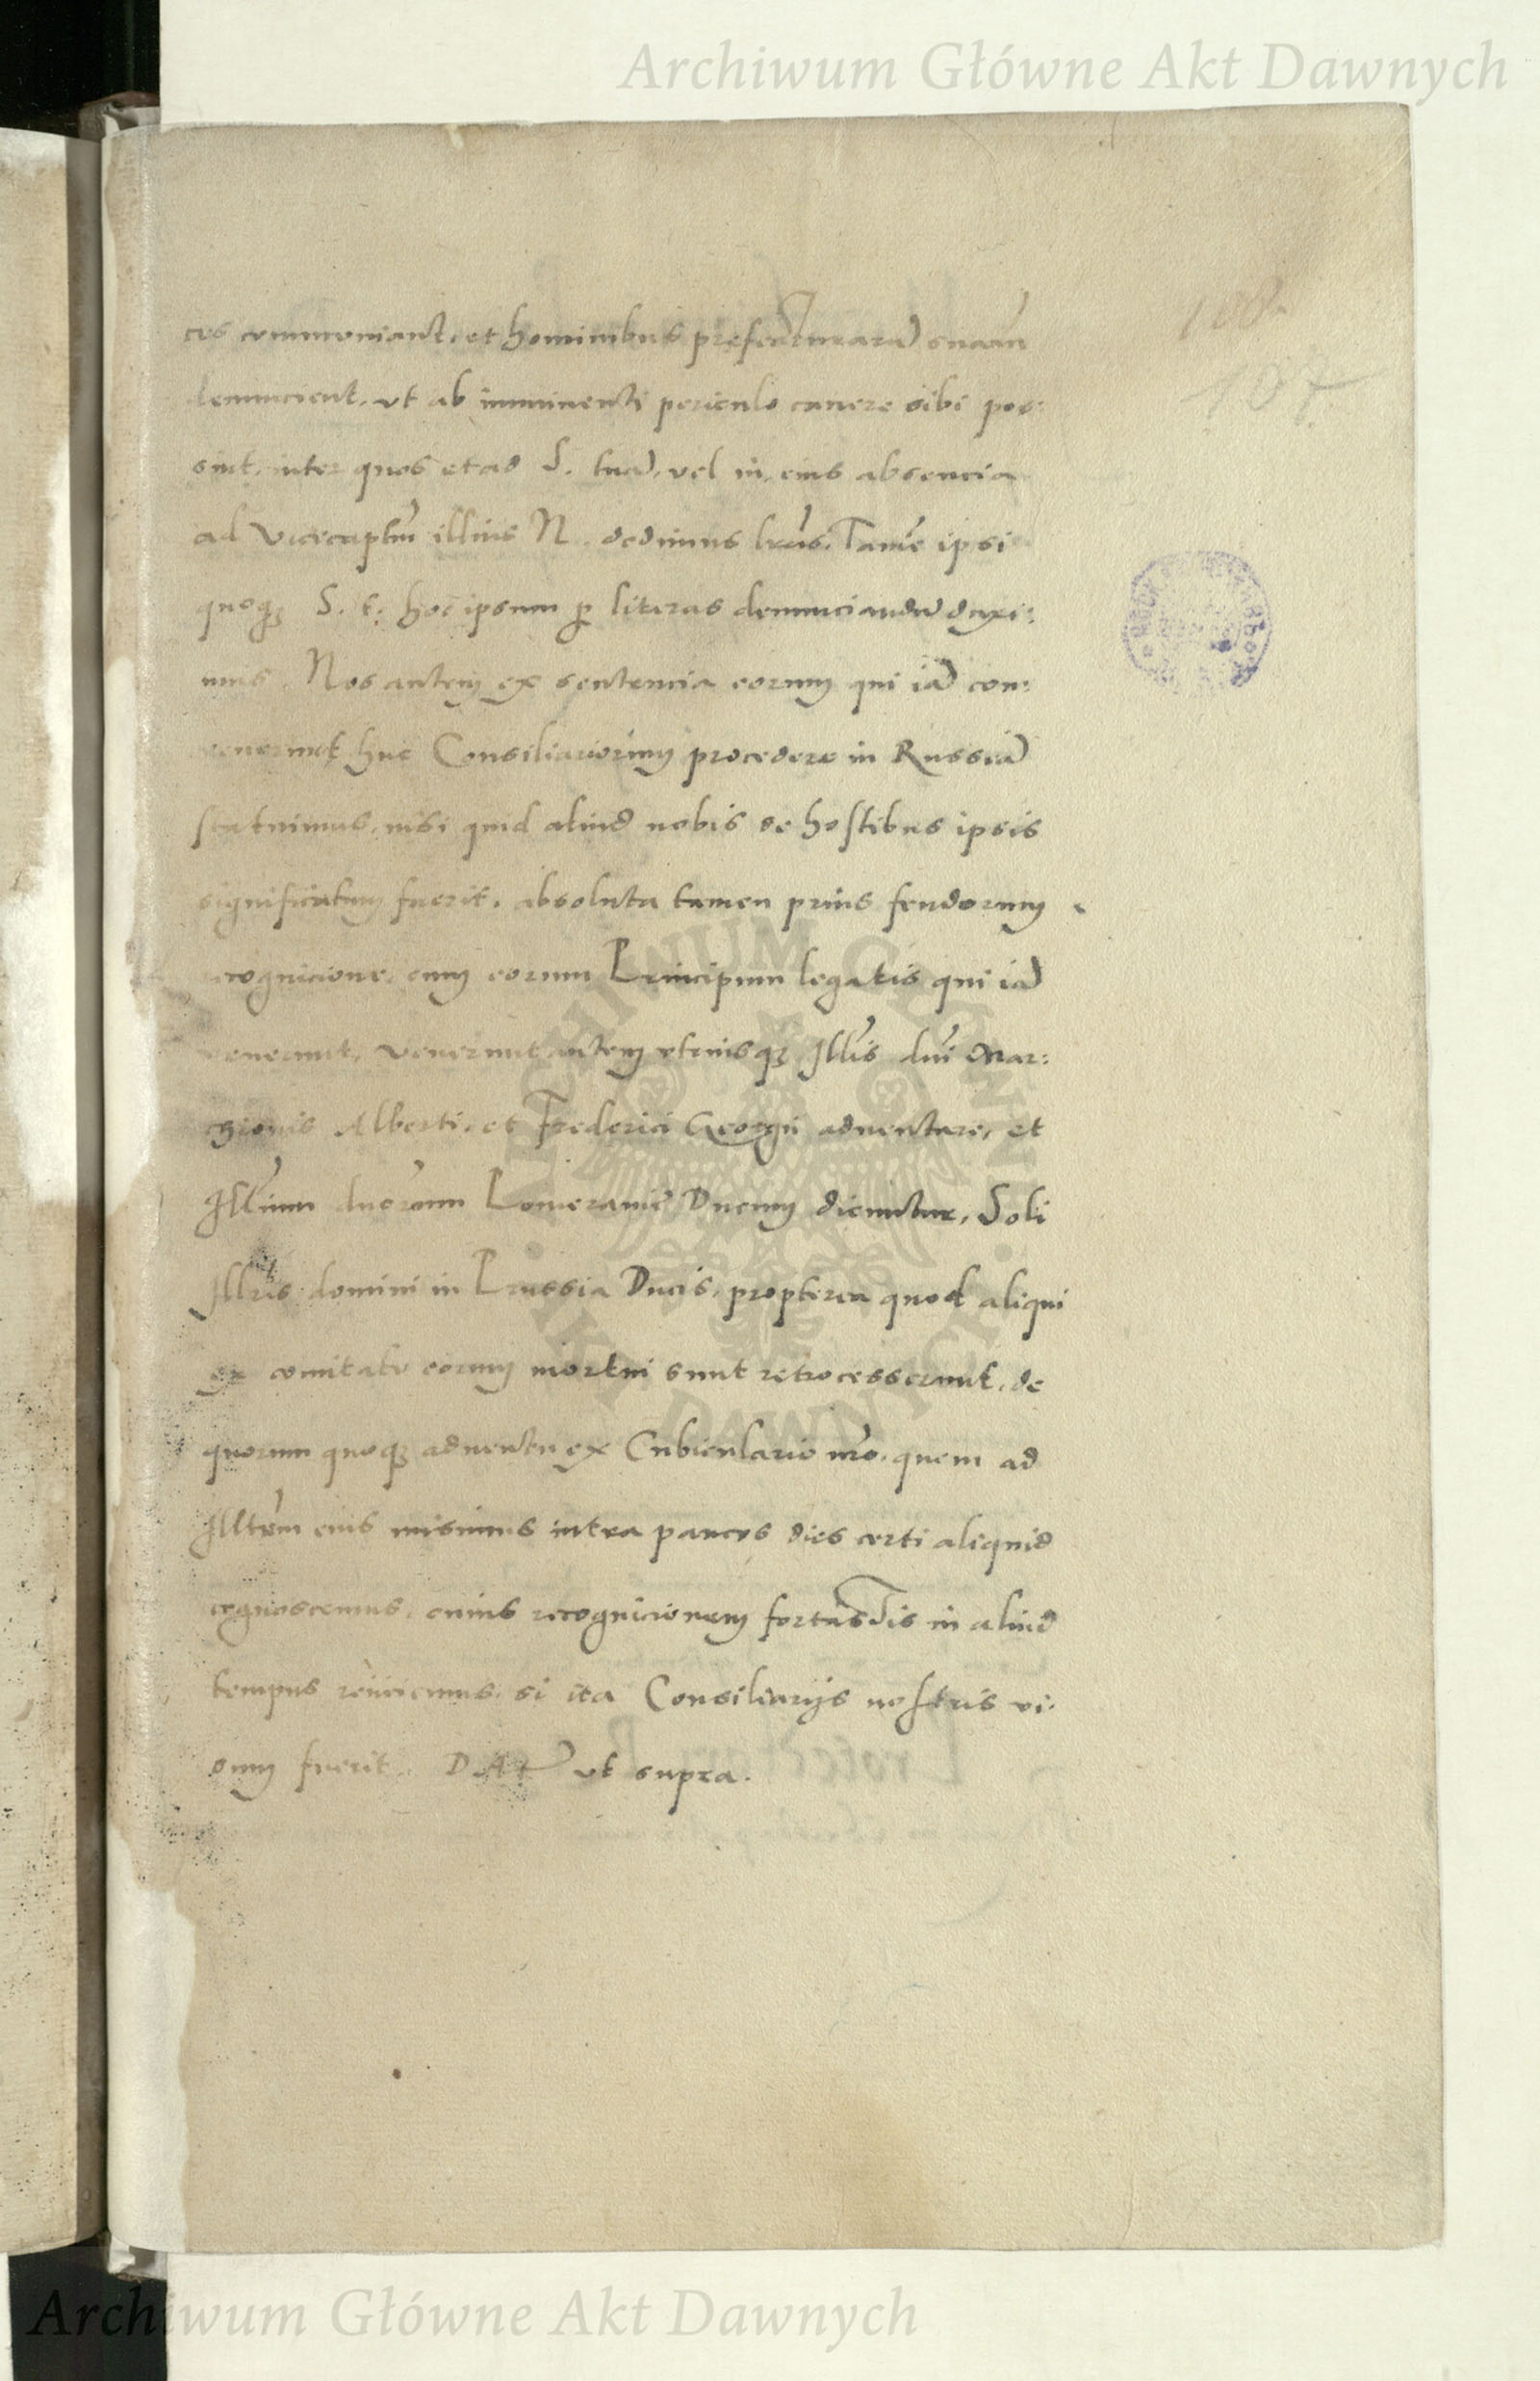 Archiwum Główne Akt Dawnych
108
107
ces commoneant, et hominibus prefecturarũ suarũ
denuncient, ut ab imminenti periculo cauere sibi pos:
sint, inter quos et ad S. tuã, vel in eius absencia
ad Vicecaptm̃ illius N. dedimus lrãs. Tamẽ ipsi
quoqȝ S. t. hoc ipsum ꝑ literas denunciandũ duxi:
mus. Nos autem ex sentencia eorum qui iã con:
venerunt huc Consiliariorum procedere in Russiã
statuimus, nisi quid aliud nobis de hostibus ipsis
significatum fuerit, absoluta tamen prius feudorum
recognicione, cum eorum Principum legatis qui iã
venerunt, venerunt autem utriusqȝ Illr̃is dnĩ Mar:
chionis Alberti, et Frederici Georgii aduentare, et
Illr̃ium ducum Pomeraniẽ Ducum dicuntur, Soli
Illr̃is domini in Prussia Ducis, propterea quod aliqui
ex comitatu eorum mortui sunt retrocesserunt, de
quorum quoqȝ aduentu ex Cubiculario nr̃o, quem ad
Illtem̃ eius misimus intra paucos dies certi aliquid
cognoscemus, cuius recognicionem fortassis in aliud
tempus reiiciemus, si ita Consiliarijs nostris vi:
sum fuerit. DAT ut supra.
ARCHIWUM GŁÓWNE AKT DAWNYCH
Archiwum Główne Akt Dawnych